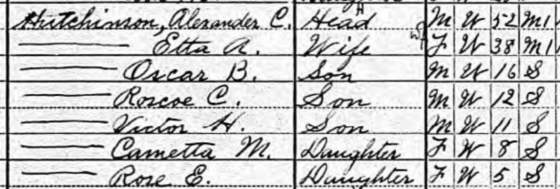 Hutchinson, Alexander C. Head M W 52 M1
—— Etta A. Wife F W 38 M1
—— Oscar B. Son M W 16 S
—— Roscoe C. Son M W 12 S
—— Victor H. Son M W 11 S
—— Cametta M. Daughter F W 8 S
—— Rose E. Daughter F W 5 S